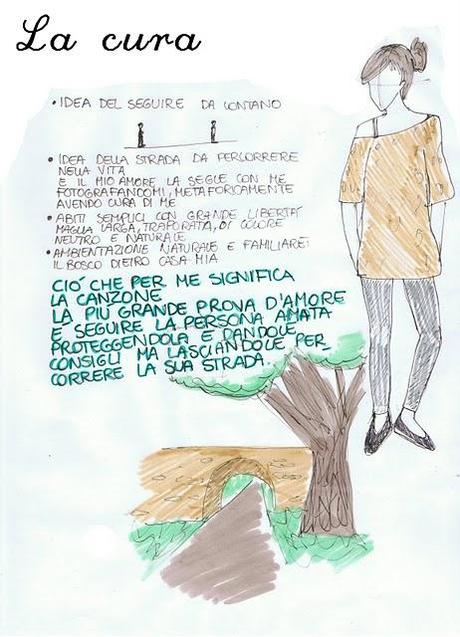 La cura
• IDEA DEL SEGUIRE DA LONTANO
• IDEA DELLA STRADA DA PERCORRERE
NELLA VITA
E IL MIO AMORE LA SEGUE CON ME
FOTOGRAFANDOMI, METAFORICAMENTE
AVENDO CURA DI ME
• ABITI SEMPLICI CON GRANDE LIBERTÁ
MAGLIA LARGA, TRAFORATA, DI COLORE
NEUTRO E NATURALE
• AMBIENTAZIONE NATURALE E FAMILIARE:
IL BOSCO DIETRO CASA MIA
CIÓ CHE PER ME SIGNIFICA
LA CANZONE
LA PIÙ GRANDE PROVA D'AMORE
E SEGUIRE LA PERSONA AMATA
PROTEGGENDOLA E DANDOLE
CONSIGLI MA LASCIANDOLE PER_
CORRERE LA SUA STRADA.